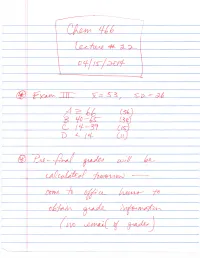 Chem 466
Lecture # 22
04/15/2014
Exam III x = 53, s = 26
A ≥ 66 (56)
B 40-65 (38)
C 14-39 (15)
D < 14 (1)
Pre-final grades will be
calculated tomorrow —
come to office hours to
obtain grade information
(no email of grades)